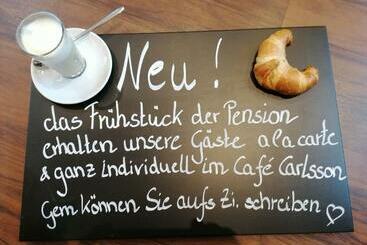 Neu!
das Frühstück der Pension
erhalten unsere Gäste a la carte
& ganz individuell im Café Carlsson
Gern können Sie aufs Zi. schreiben ♡